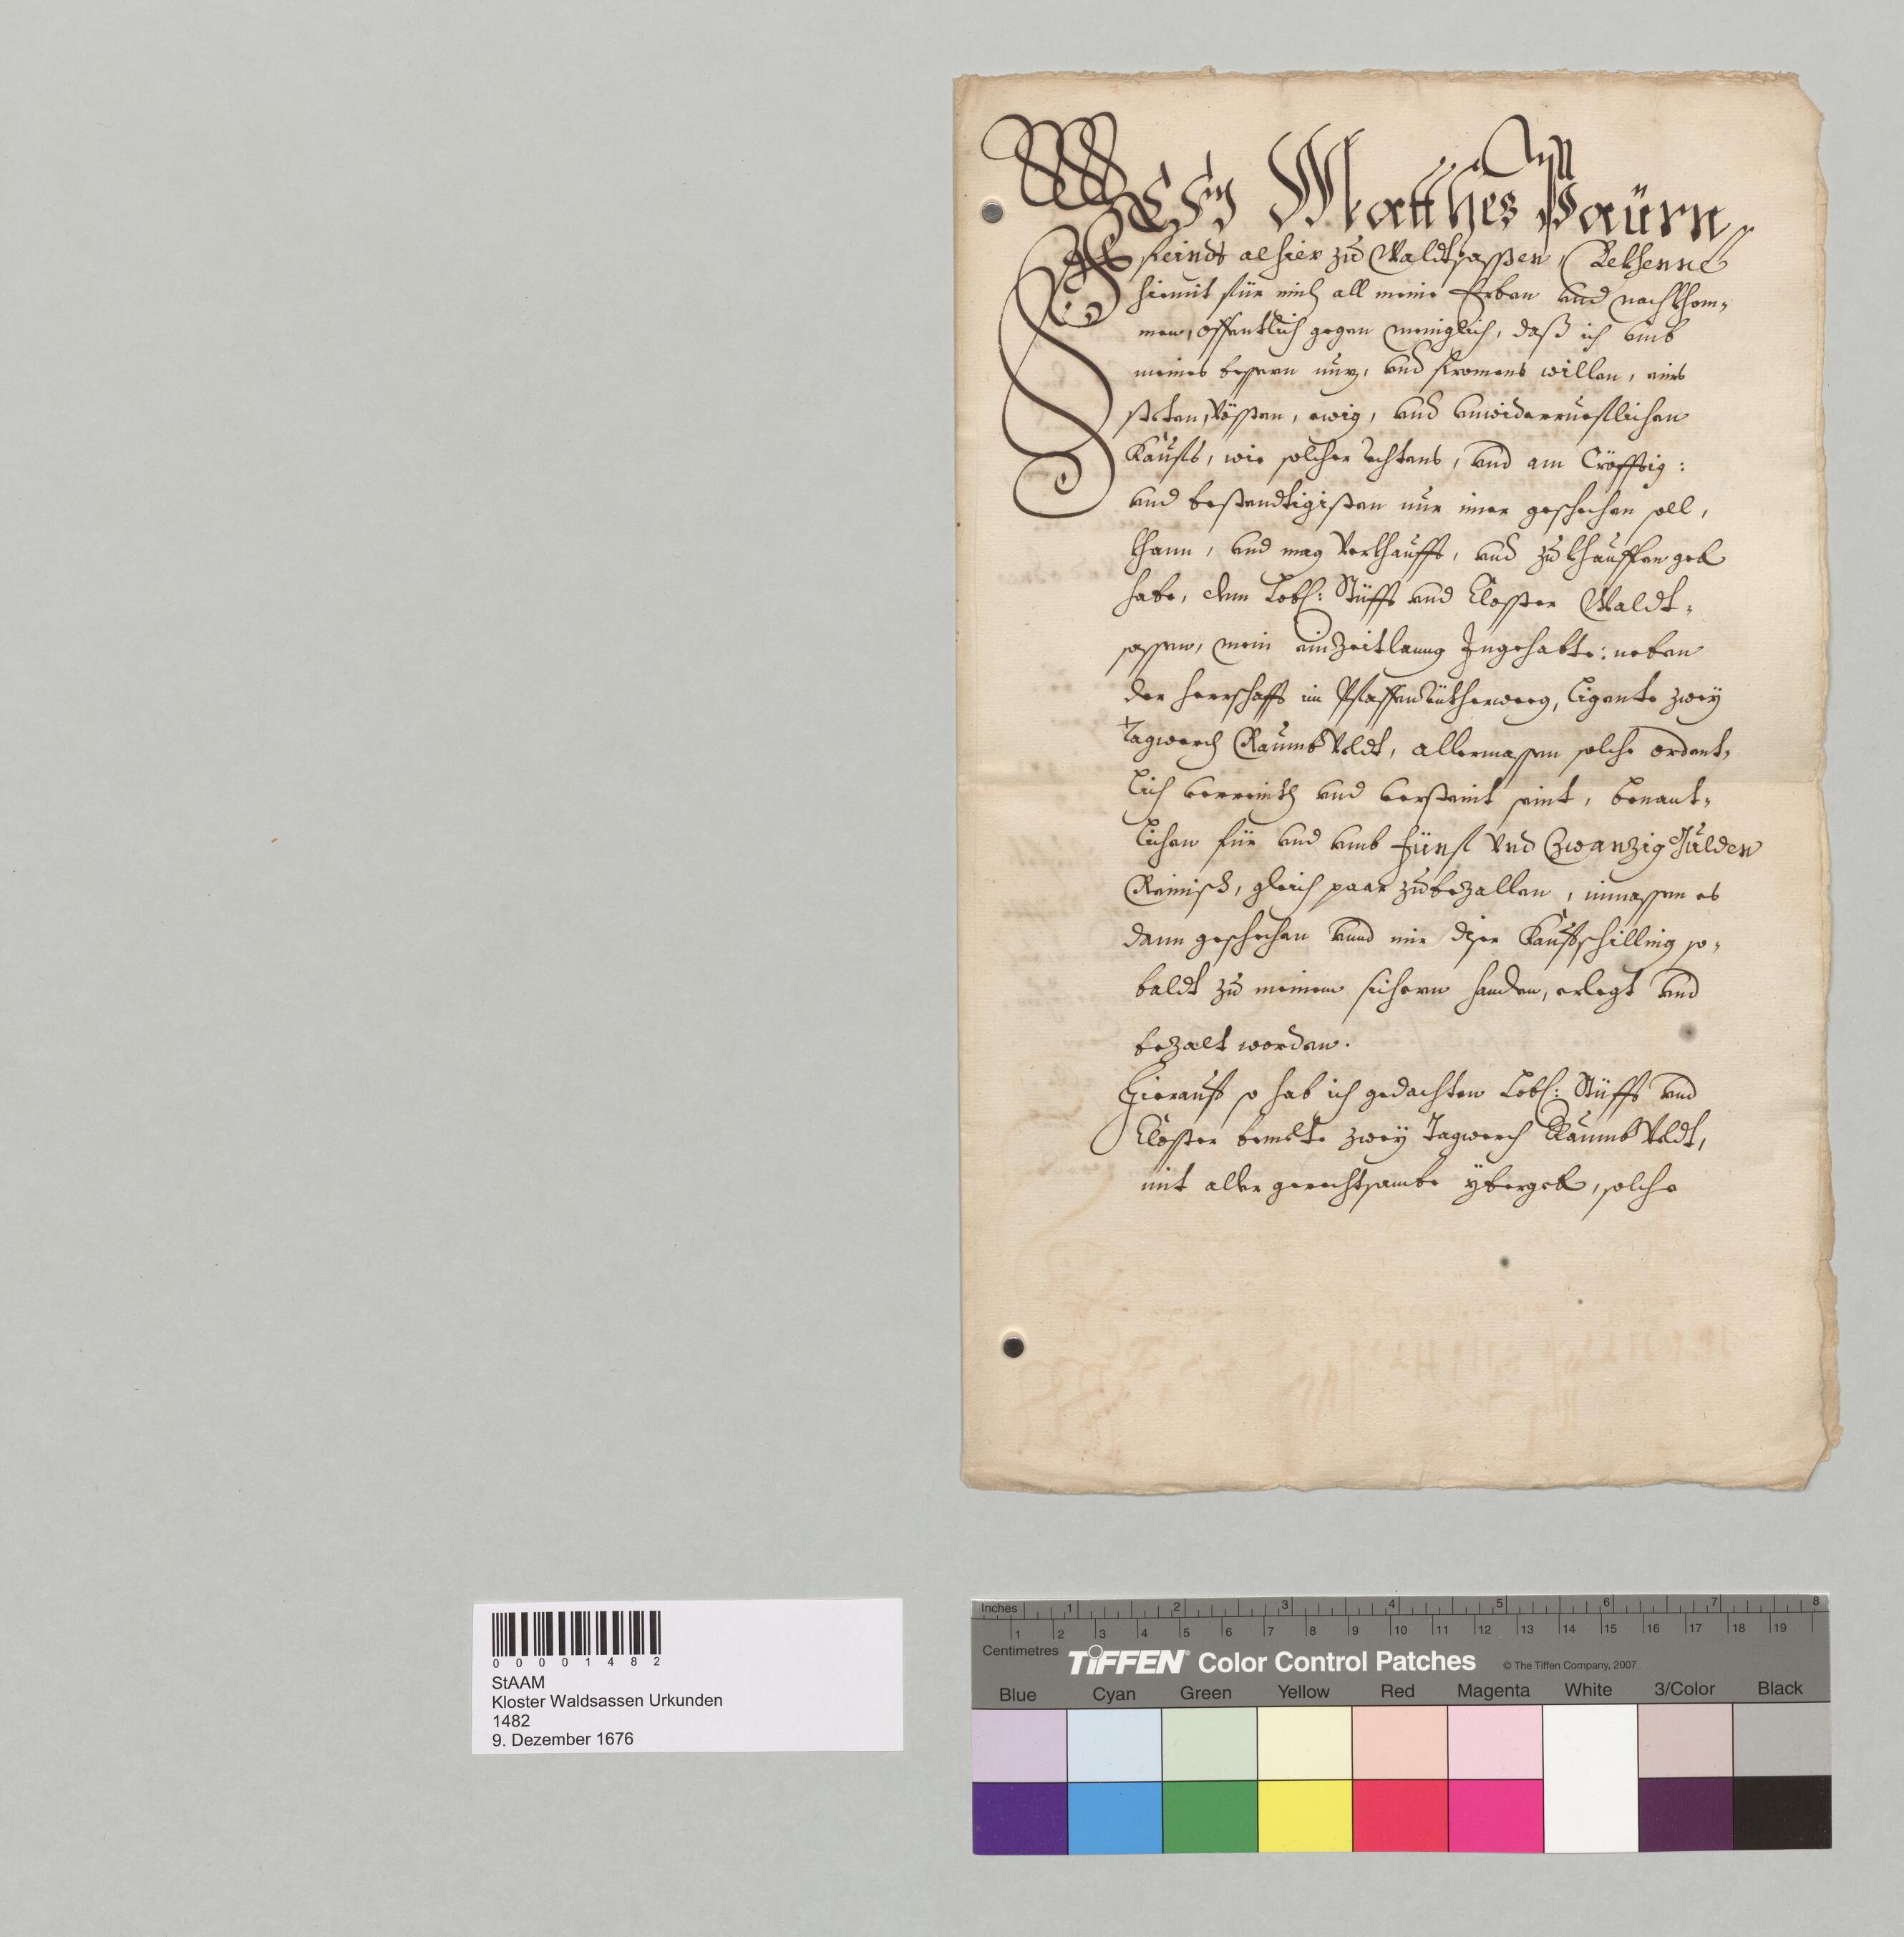 Ich Matthes Paürn
feindt alhier zu Waldtsaßen, Bekhenne
hiemit für mich all meine Erben und nachkhom-
men, offentlich gegen meniglich, daß ich umb
meines bessern nuz, und fromens willen, eines
steten, vössten, ewig, und unwiderruefflichen
Kauffs, wie solcher rechtens, und am Cröfftig:
und bestendtigisten nur imer geschehen soll,
khann, und mag verkhaufft, und zu khauffen geben
habe, dem Lobl: Stüfft und Closter Waldt-
sassen, mein ein Zeitlanng Ingehabte: neben
der herrschafft im Pfaffenreütherweeg, ligente zwey
Tagwerch Raumb Veldt, allermassen solche ordent-
lich verreinth und versteint seint, benant-
lichen für und umb fünff Und Zwanzig Gulden
Reinisch, gleich paar zubezallen, inmassen es
dann geschehen unnd mir diser Kauffschilling so-
baldt zu meinem sichern handen, erlegt und
bezalt worden.
Hierauff so hab ich gedachten Lobl: Stüfft und
Closter bemelte zwey Tagwerch Raumb Veldt,
mit aller gerechtsambe ybergeben, solche
00001482
StAAM
Kloster Waldsassen Urkunden
1482
9. Dezember 1676
Inches 1 2 3 4 5 6 7 8
1 2 3 4 5 6 7 8 9 10 11 12 13 14 15 16 17 18 19
Centimetres TIFFEN® Color Control Patches © The Tiffen Company, 2007
Blue Cyan Green Yellow Red Magenta White 3/Color Black